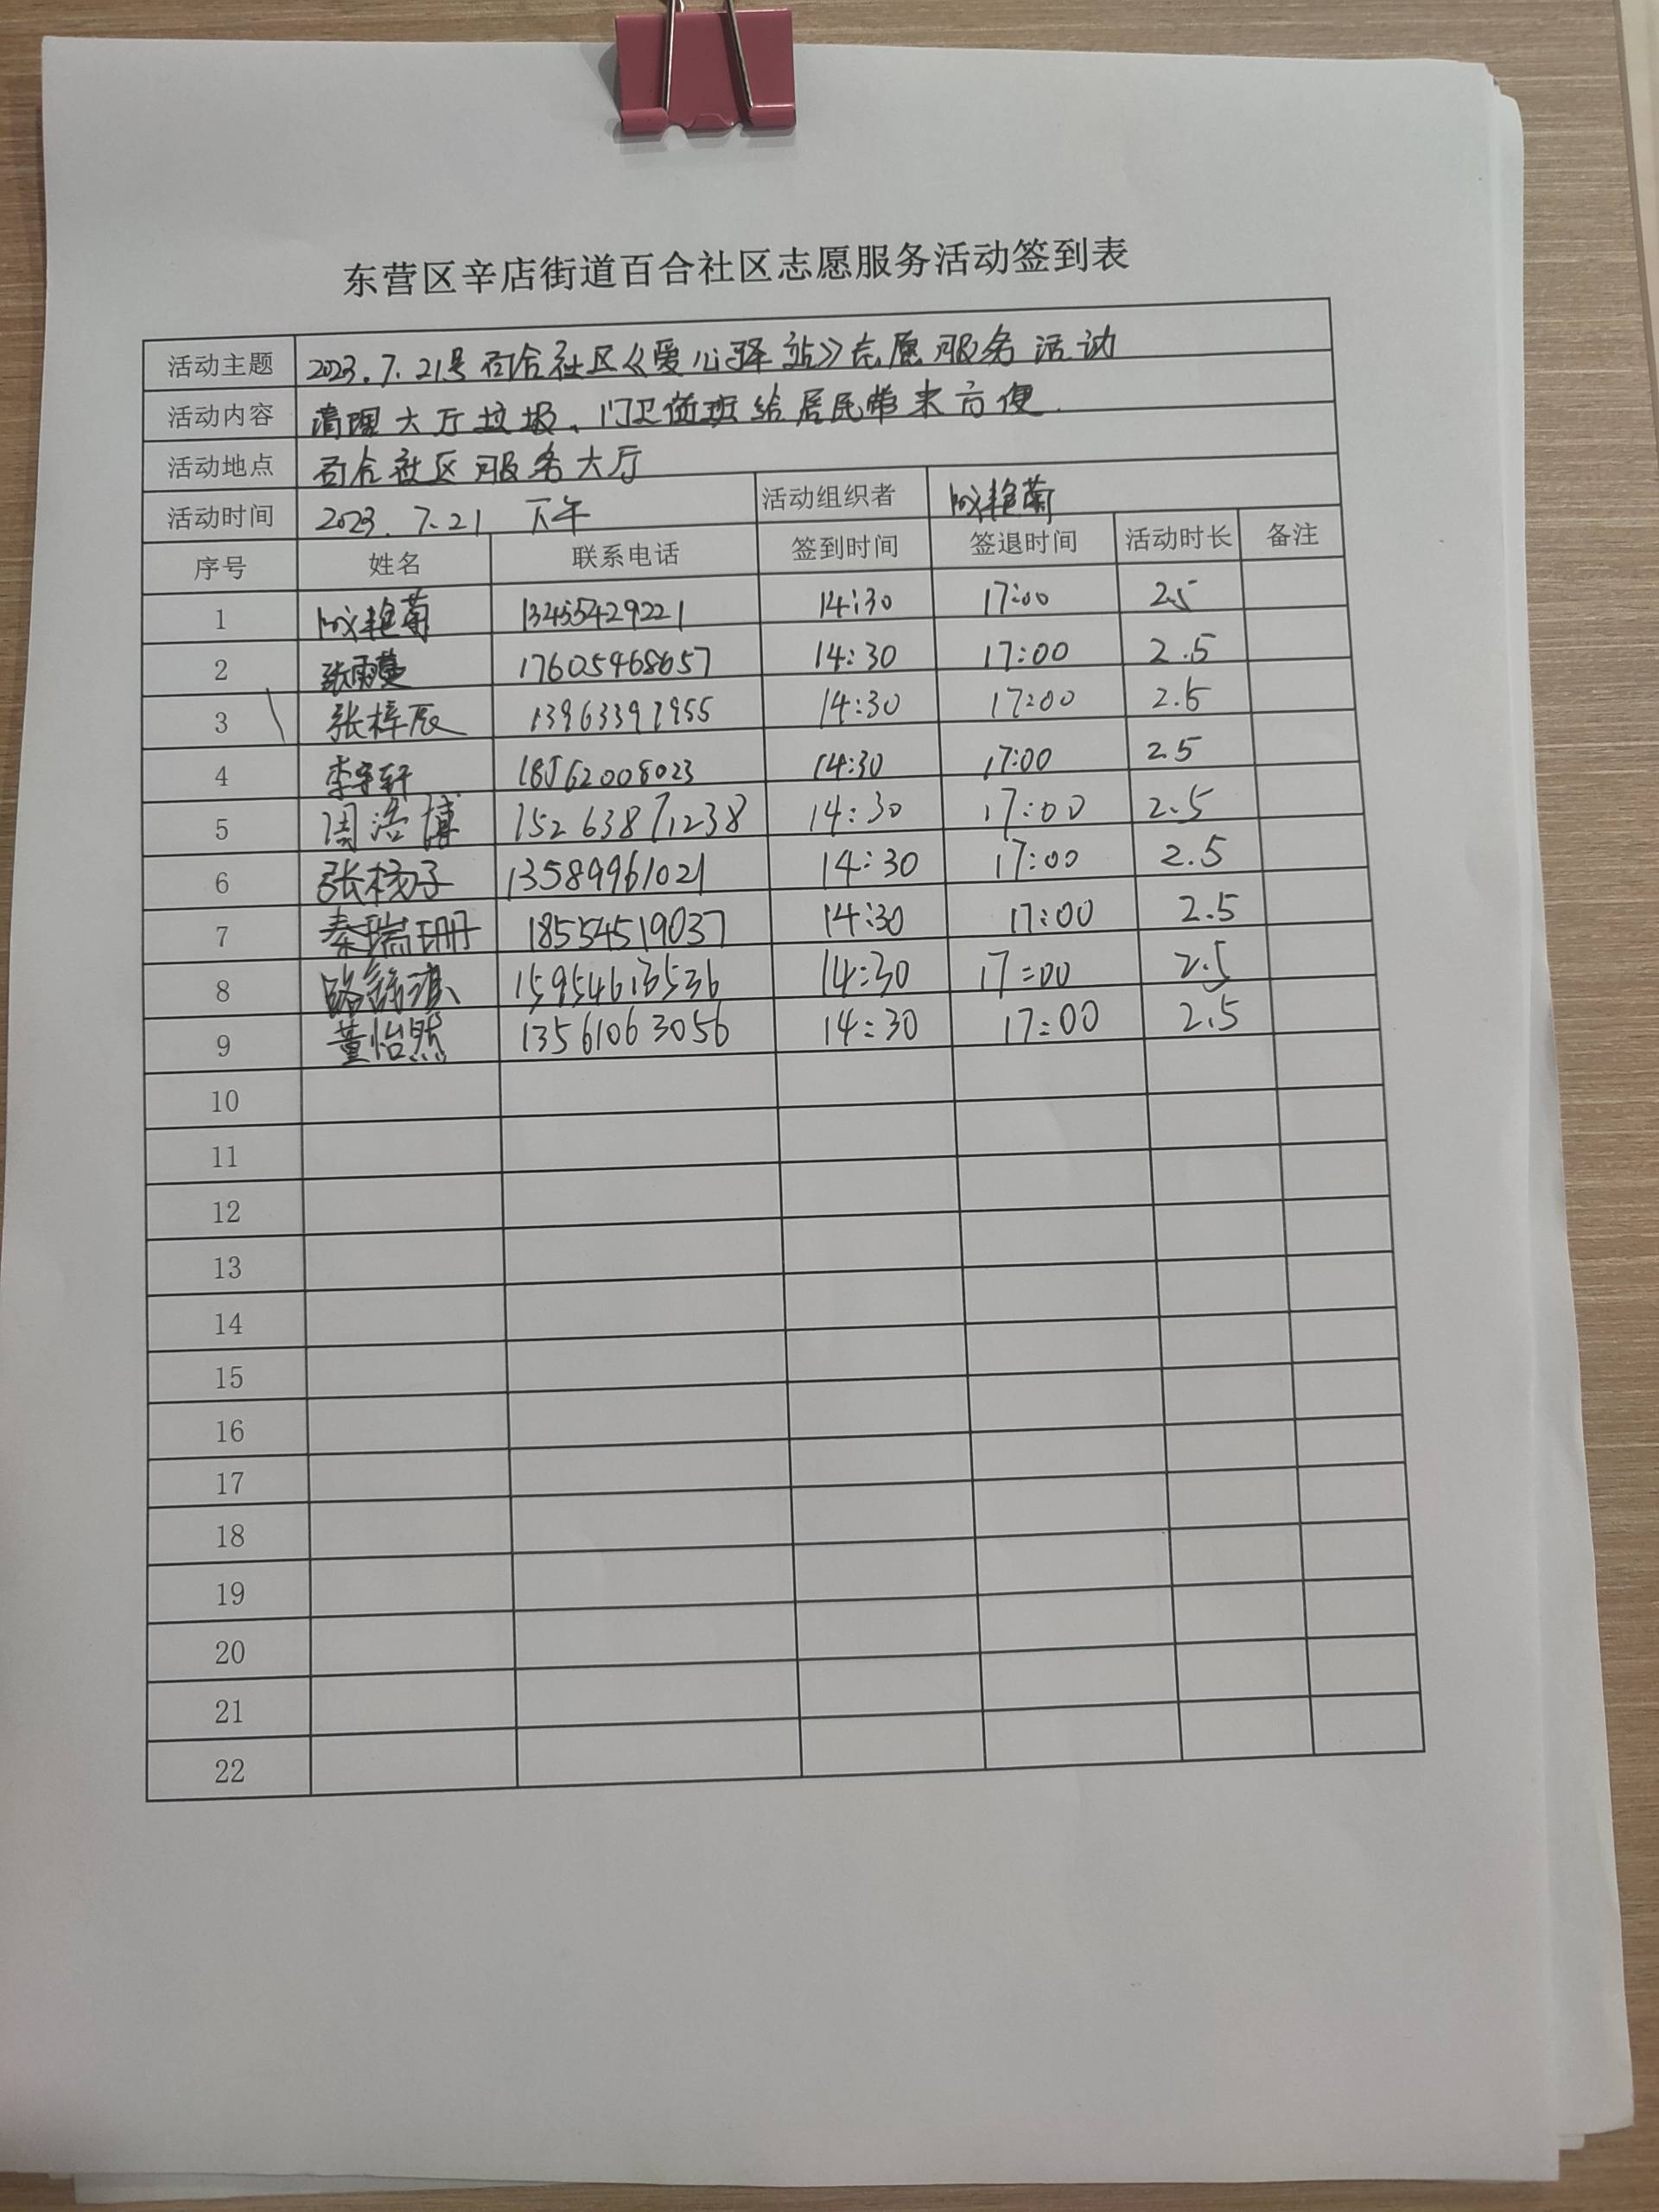 东营区辛店街道百合社区志愿服务活动签到表
活动主题 2023.7.21号百合社区《爱心驿站》志愿服务活动
活动内容 清理大厅垃圾、门卫值班给居民带来方便.
活动地点 百合社区服务大厅
活动时间 2023.7.21 下午 活动组织者 艳菊
序号 姓名 联系电话 签到时间 签退时间 活动时长 备注
1 艳菊 13455429221 14:30 17:00 2.5
2 张雨蔓 17605468657 14:30 17:00 2.5
3 张梓辰 13963397955 14:30 17:00 2.5
4 李宇轩 18562008023 14:30 17:00 2.5
5 周浩博 15263871238 14:30 17:00 2.5
6 张杨子 13589961021 14:30 17:00 2.5
7 秦瑞珊 18554519037 14:30 17:00 2.5
8 路 14:30 17:00 2.5
9 董怡然 13561063056 14:30 17:00 2.5
10
11
12
13
14
15
16
17
18
19
20
21
22